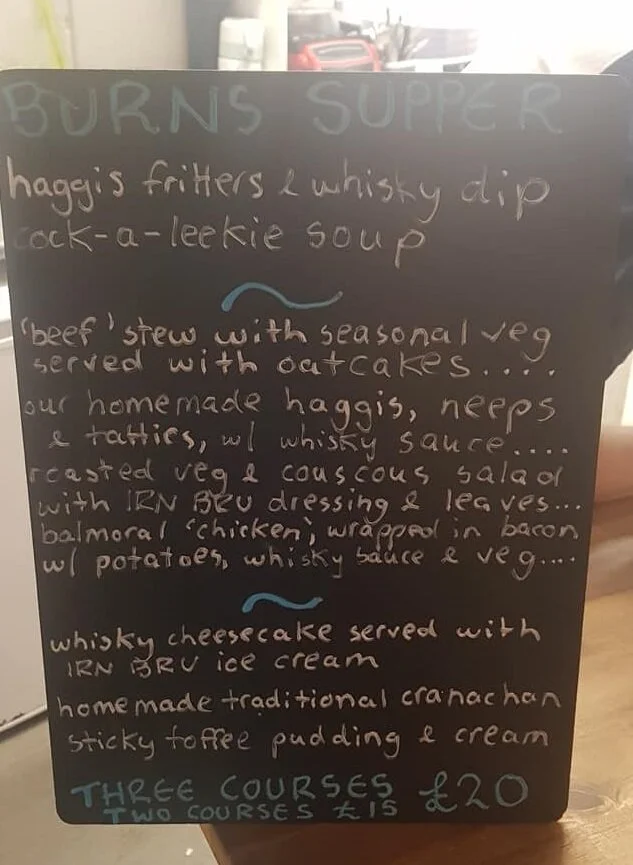 BURNS SUPPER
haggis fritters & whisky dip
cock-a-leekie soup
'beef' stew with seasonal veg
served with oatcakes....
our homemade haggis, neeps
& tatties, w/ whisky sauce....
roasted veg & couscous salad
with IRN BRU dressing & leaves...
balmoral 'chicken', wrapped in bacon
w/ potatoes, whisky sauce & veg....
whisky cheesecake served with
IRN BRU ice cream
homemade traditional cranachan
sticky toffee pudding & cream
THREE COURSES £20
TWO COURSES £15